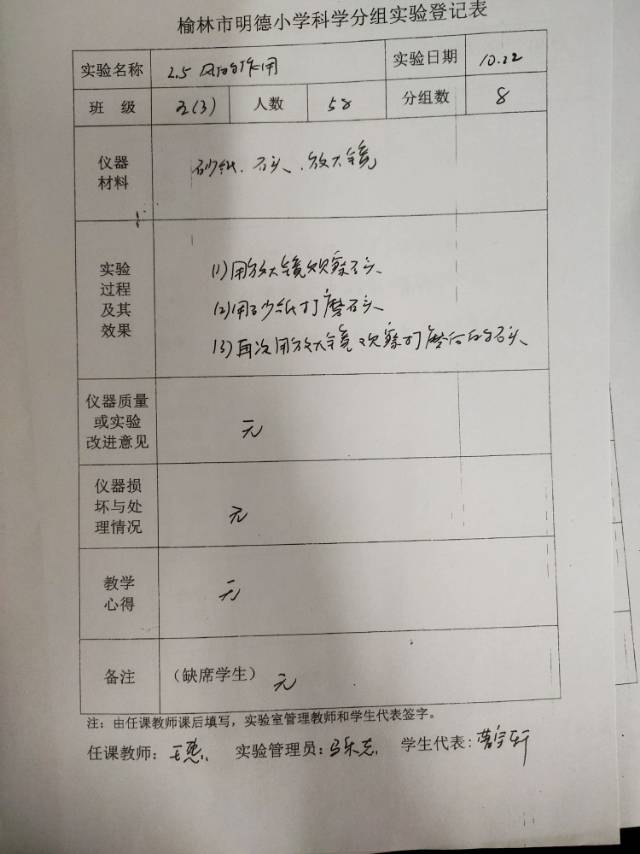 榆林市明德小学科学分组实验登记表
实验名称 2.5 风的作用 实验日期 10.22
班 级 五(3) 人数 58 分组数 8
仪器
材料
砂纸、石头、放大镜
实验
过程
及其
效果
(1)用放大镜观察石头
(2)用砂纸打磨石头
(3)再次用放大镜观察打磨后的石头
仪器质量
或实验
改进意见
无
仪器损
坏与处
理情况
无
教学
心得
无
备注 (缺席学生) 无
注：由任课教师课后填写，实验室管理教师和学生代表签字。
任课教师： 实验管理员： 学生代表：